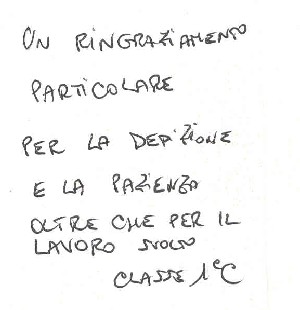 UN RINGRAZIAMENTO
PARTICOLARE
PER LA DEDIZIONE
E LA PAZIENZA
OLTRE CHE PER IL
LAVORO SVOLTO
CLASSE 1°C